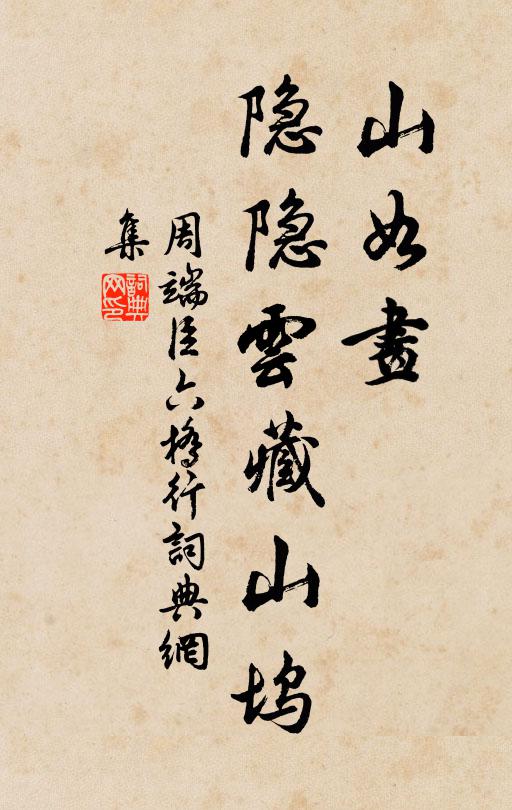 山如畫
隐隐雲藏山坞
周端臣六橋行詞典網
集
詞典网印